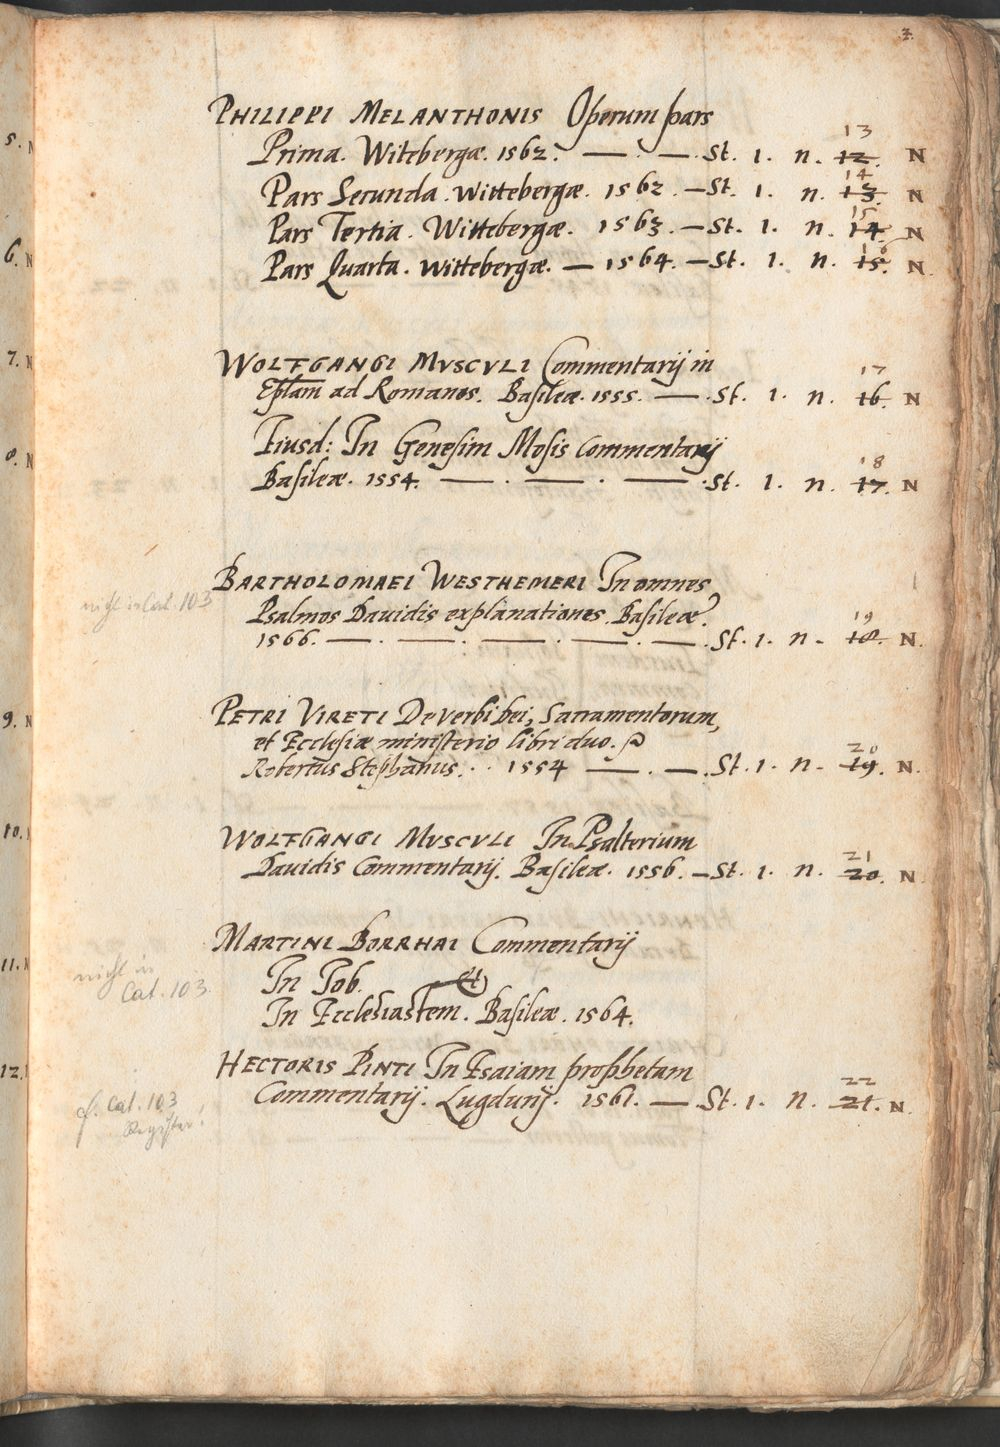 3.
PHILIPPI MELANTHONIS Operum pars
13
Prima. Witebergæ. 1562. — . — . St. 1. n. 12. N
14
Pars Secunda. Wittebergæ. 1562. — St. 1. n. 13. N
15
Pars Tertia. Wittebergæ. 1563. — St. 1. n. 14. N
16
Pars Quarta. Wittebergæ. — 1564. — St. 1. n. 15. N
WOLFGANGI MVSCVLI Commentarij in
17
Epl̄am ad Romanos. Basileæ. 1555. — . St. 1. n. 16. N
Eiusd: In Genesim Mosis Commentarij
18
Basileæ. 1554. — . — . — . St. 1. n. 17. N
BARTHOLOMAEI WESTHEMERI In omnes
nicht in Cat. 103
Psalmos Dauidis explanationes. Basileæ.
19
1566. — . — . — . — . — . St. 1. n. 18. N.
PETRI VIRETI De verbi Dei, Sacramentorum,
et Ecclesiæ ministerio libri duo.
20
Robertus Stephanus. . . 1554 — . — . St. 1. n. 19. N.
WOLFGANGI MVSCVLI In Psalterium
21
Dauidis Commentarij. Basileæ. 1556. — St. 1. n. 20. N
MARTINI BORRHAI Commentarij
nicht in
Cat. 103.
In Iob. et
In Ecclesiastem. Basileæ. 1564.
HECTORIS PINTI In Esaiam prophetam
22
Commentarij. Lugdunj. 1561. — St. 1. n. 21. N.
cf. Cat. 103
Register!
5. N
6. N
7. N
8. N
9. N
10. N
11. N
12. N